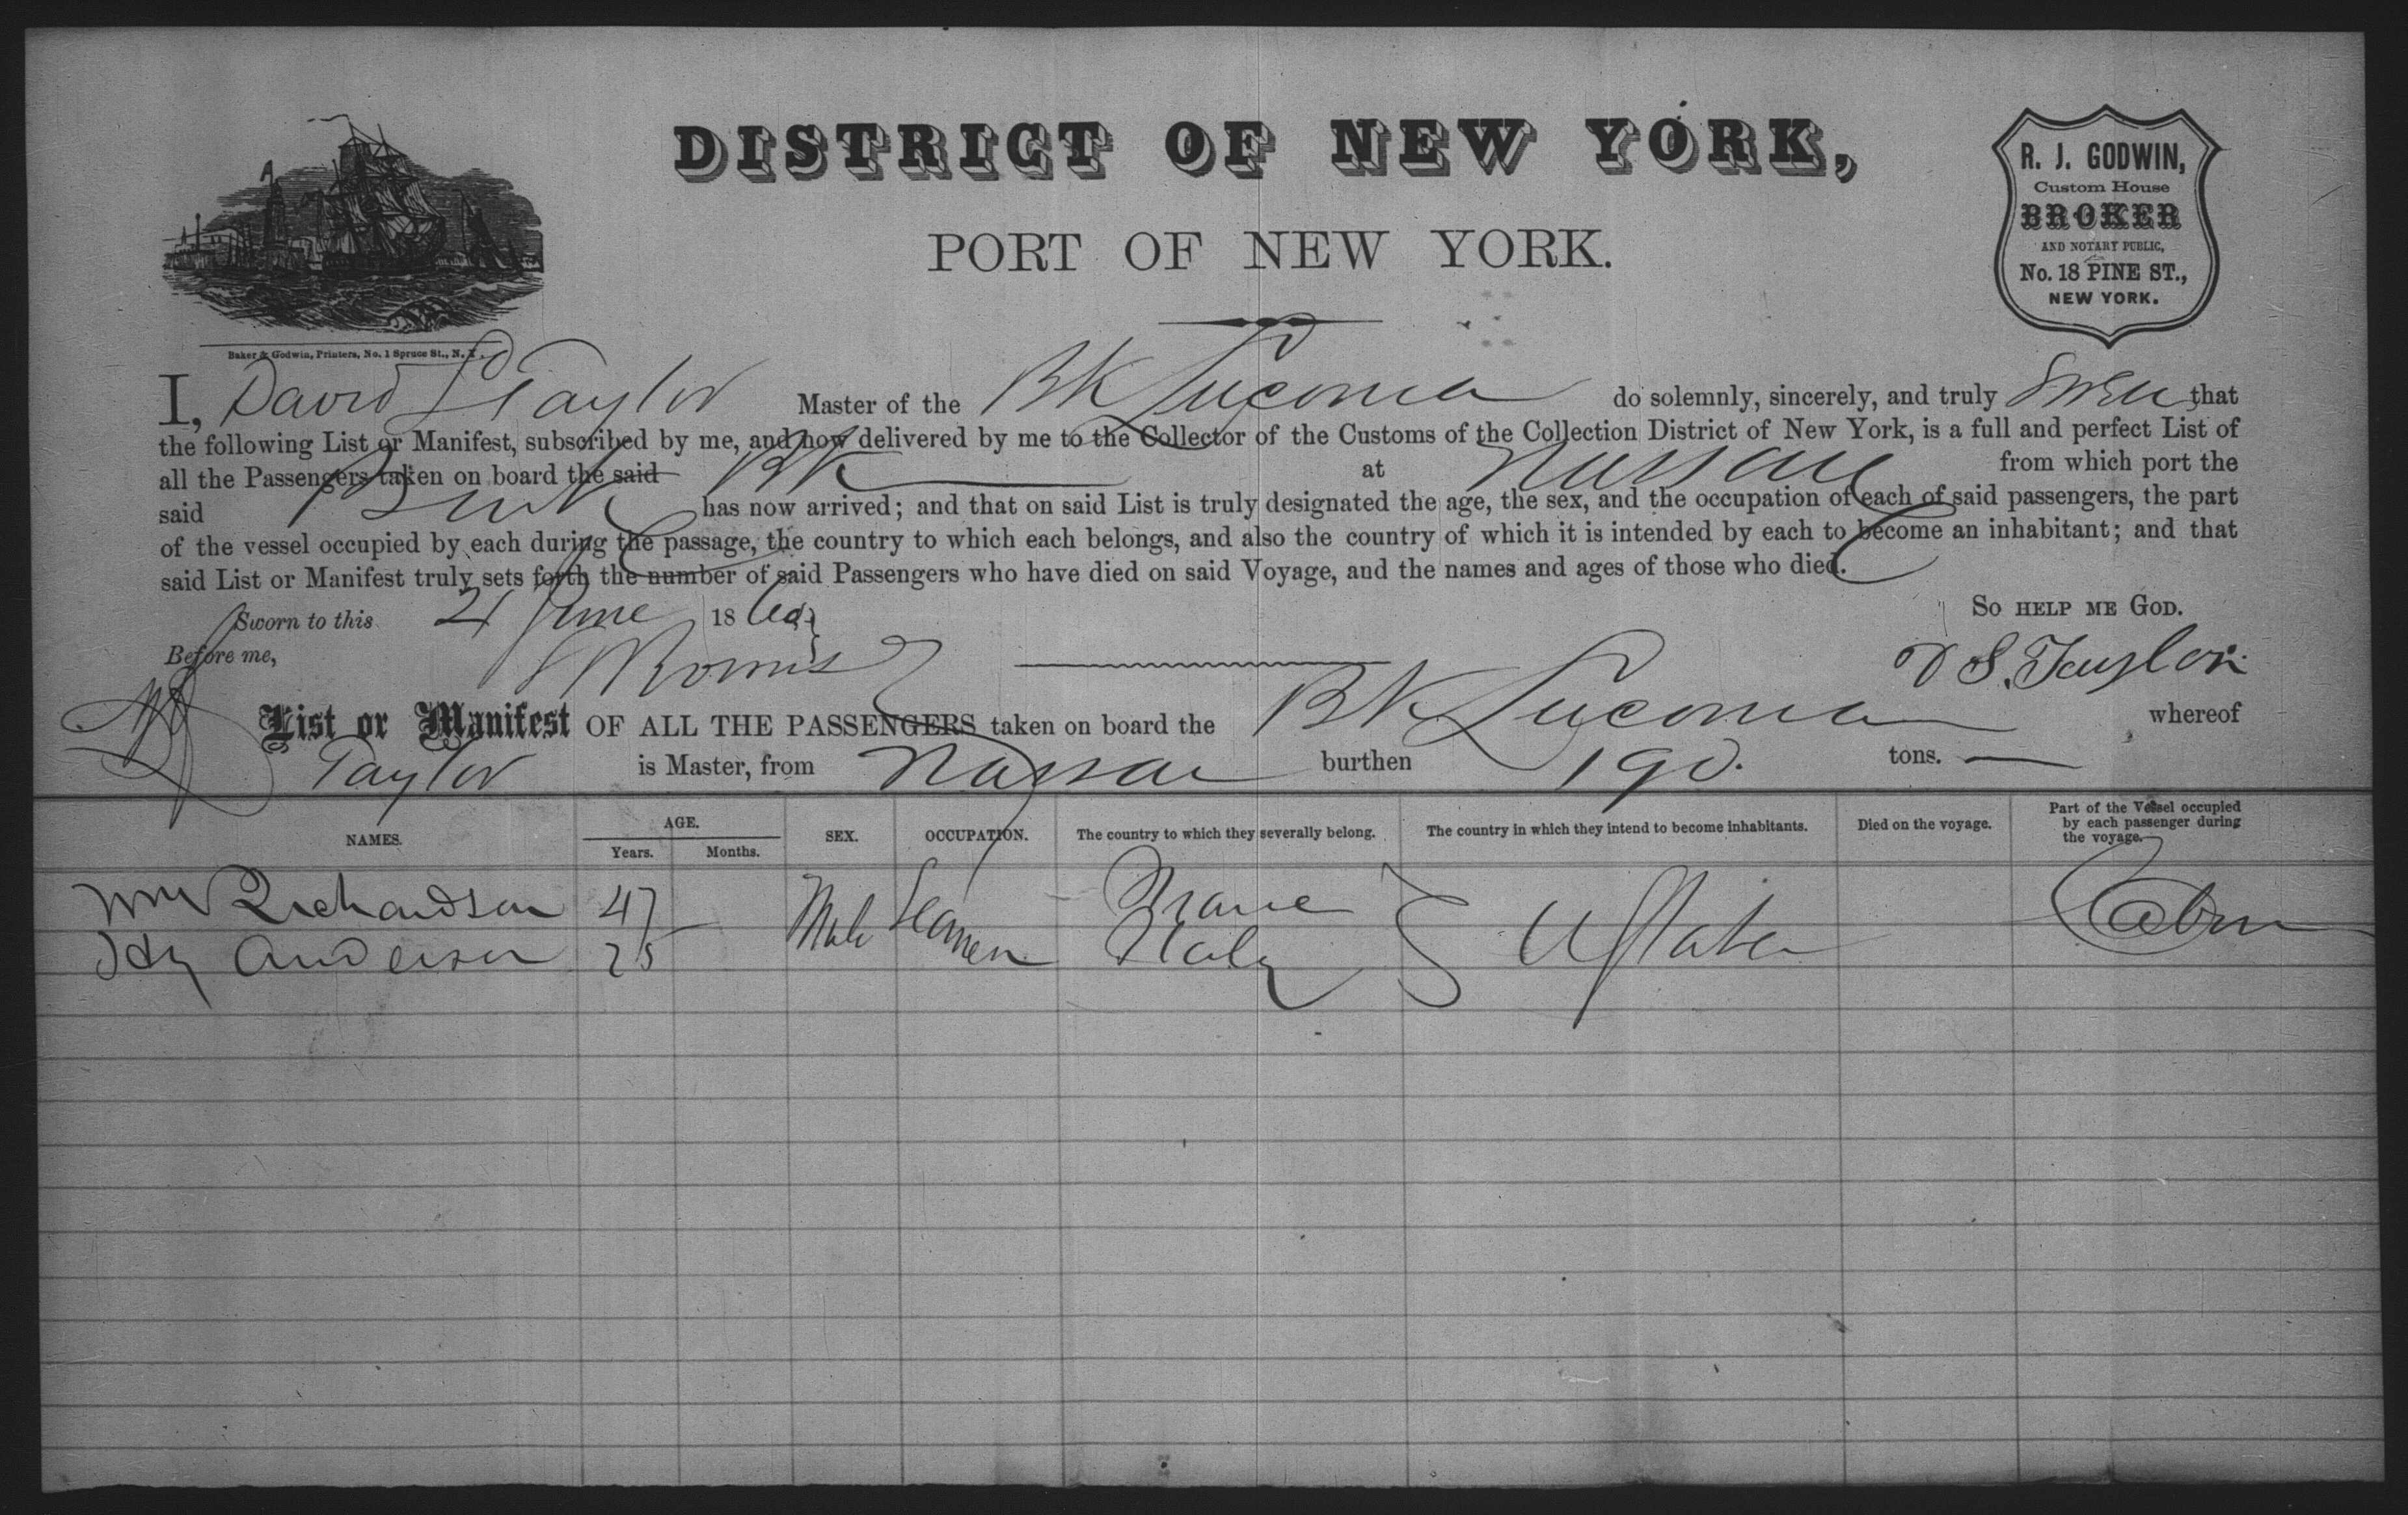 DISTRICT OF NEW YORK,
PORT OF NEW YORK.
R. J. GODWIN,
Custom House
BROKER
AND NOTARY PUBLIC,
No. 18 PINE ST.,
NEW YORK.
Baker & Godwin, Printers, No. 1 Spruce St., N. Y.
I, David S Taylor Master of the BK Lucona do solemnly, sincerely, and truly that
the following List or Manifest, subscribed by me, and now delivered by me to the Collector of the Customs of the Collection District of New York, is a full and perfect List of
all the Passengers taken on board the said BK at Nassau from which port the
said Bark has now arrived; and that on said List is truly designated the age, the sex, and the occupation of each of said passengers, the part
of the vessel occupied by each during the passage, the country to which each belongs, and also the country of which it is intended by each to become an inhabitant; and that
said List or Manifest truly sets forth the number of said Passengers who have died on said Voyage, and the names and ages of those who died.
Sworn to this 21 June 18 So HELP ME GOD.
Before me, D S. Taylor
List or Manifest OF ALL THE PASSENGERS taken on board the BK Lucona whereof
Taylor is Master, from Nassau burthen 190. tons.
NAMES. AGE. Years. Months. SEX. OCCUPATION. The country to which they severally belong. The country in which they intend to become inhabitants. Died on the voyage. Part of the Vessel occupied by each passenger during the voyage.
Wm Richardson 47 Male Seamen U States Cabin
Hy Anderson 25 Italy